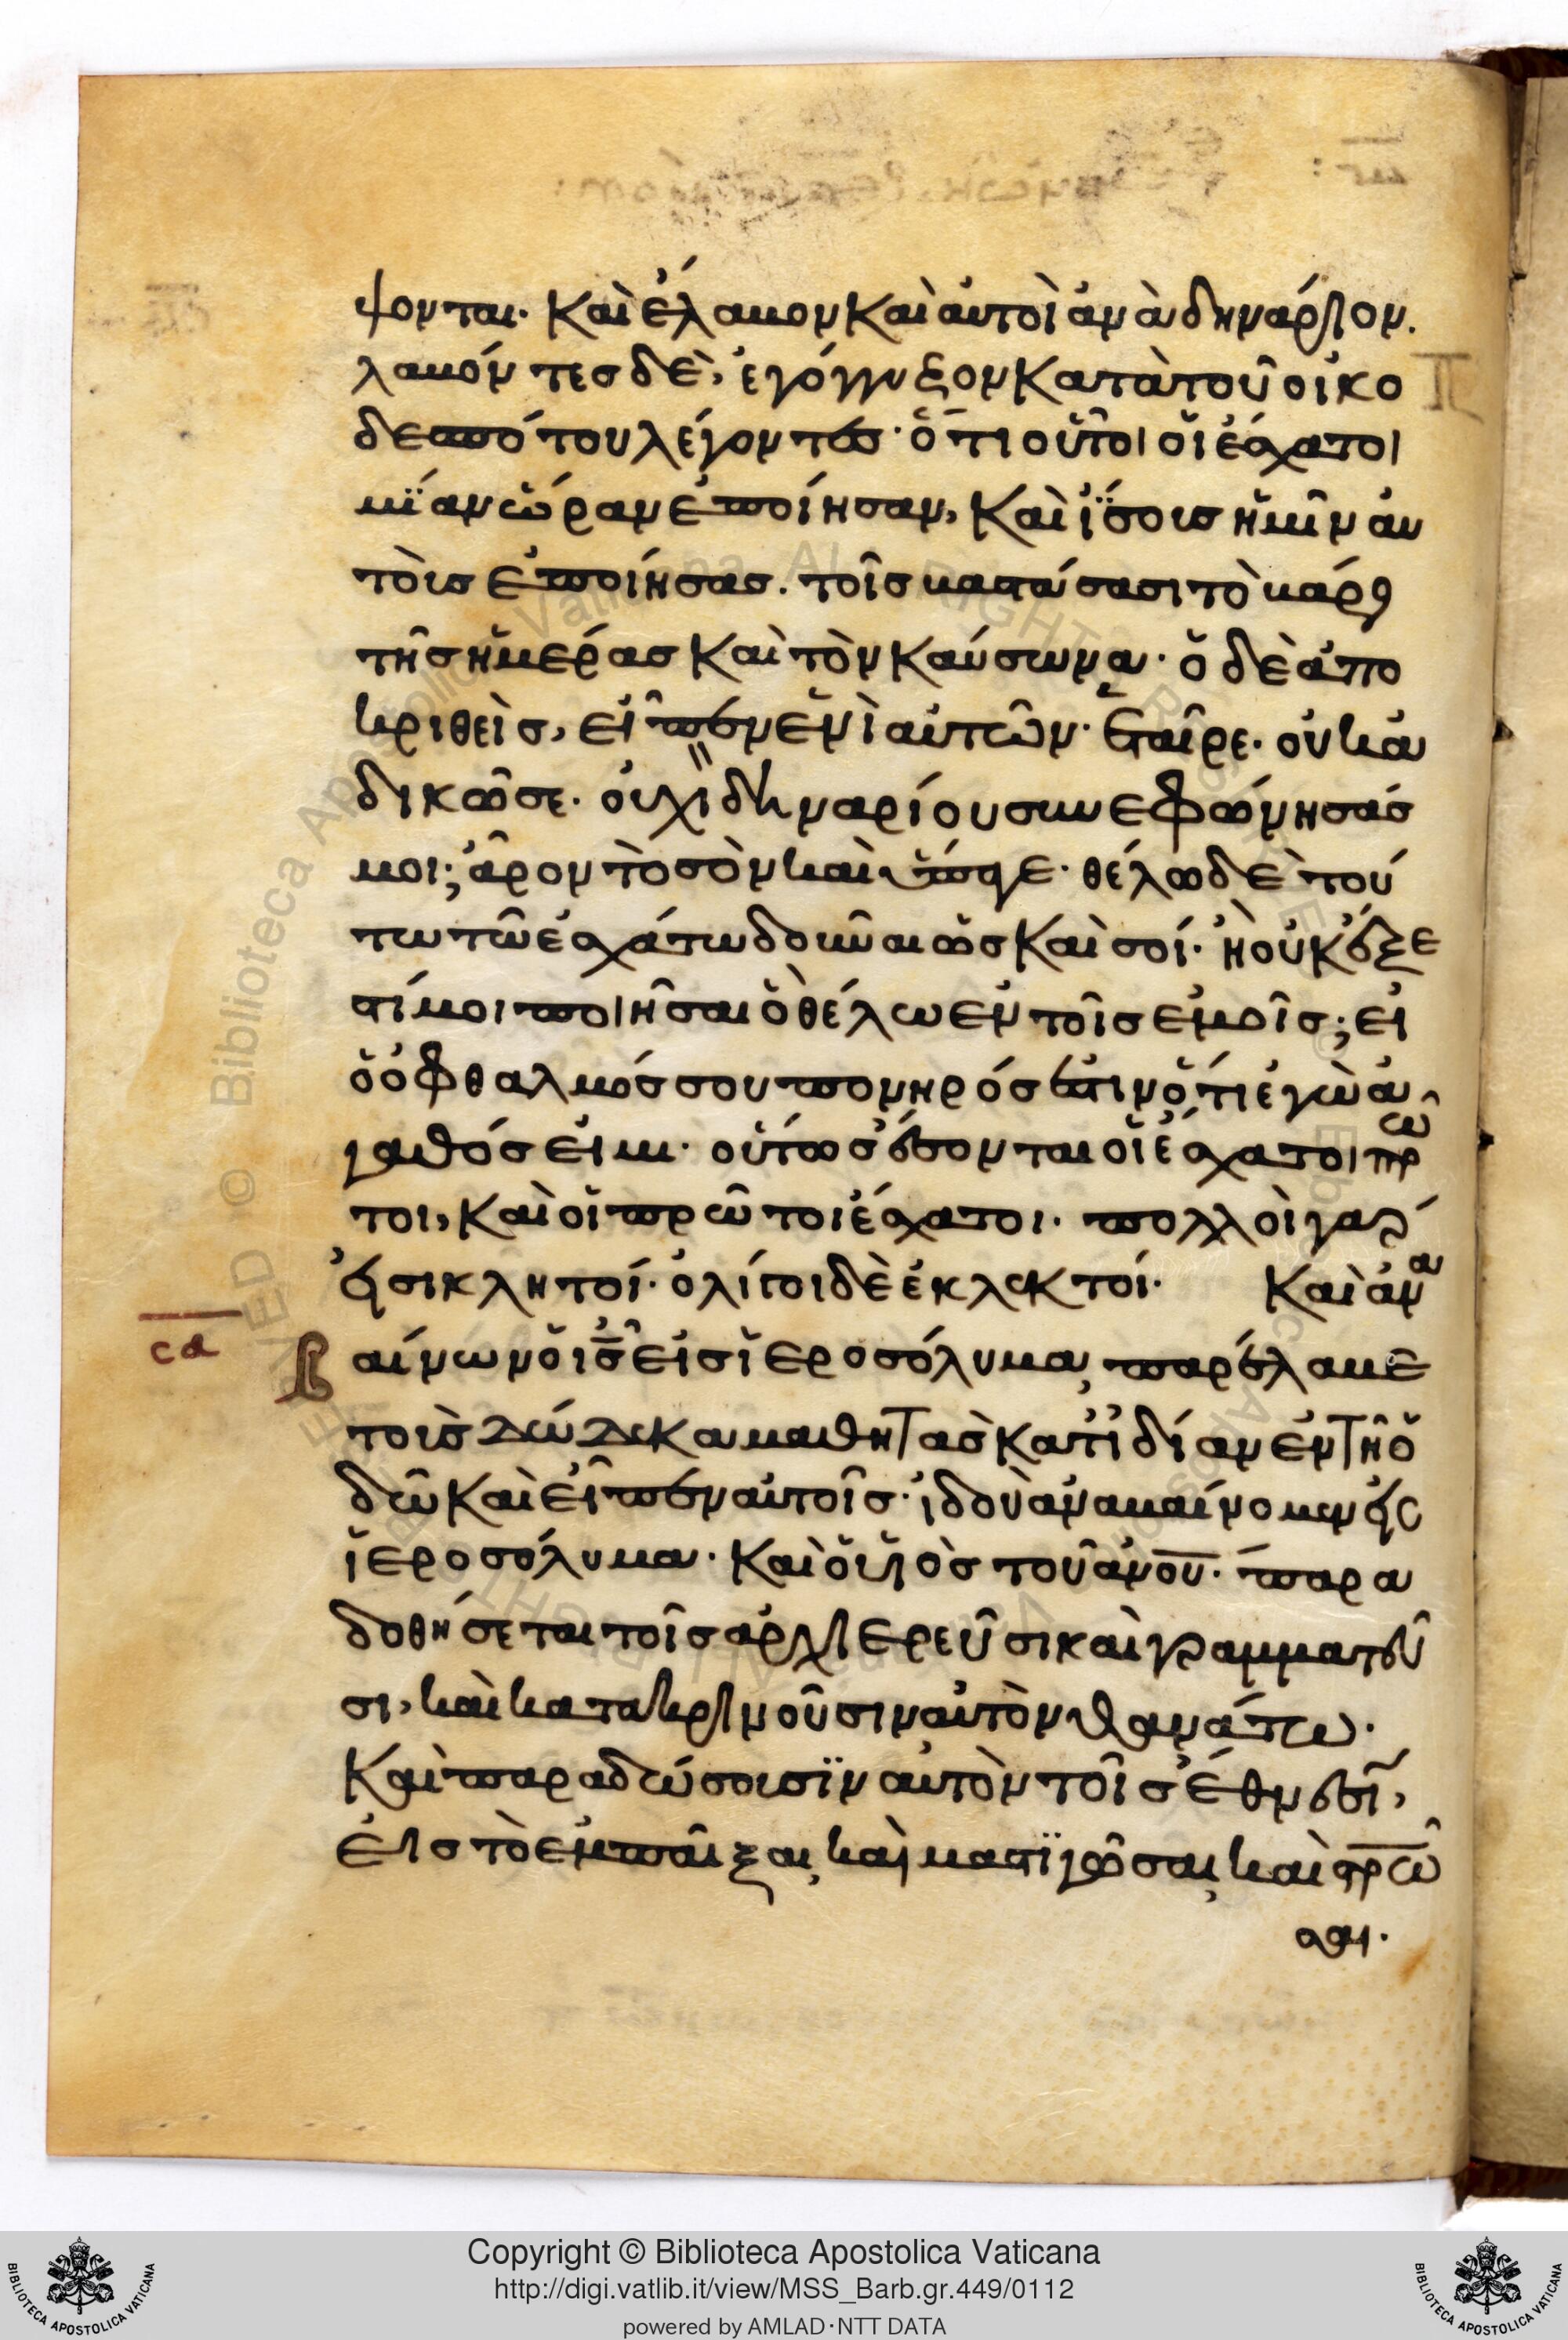 ψονται. Καὶ ἔλαβον Καὶ αὐτοὶ ἀνὰ δηνάριον.
λαβόντες δὲ, ἐγόγγυζον Κατὰ τοῦ οἰκο
δεσπότου λέγοντες· ὅτι οὗτοι οἱ ἔσχατοι
μΐαν ὥραν ἐποίησαν, Καὶ ἴσους ἡμῖν αὐ
τοὺς ἐποίησας. τοῖς βαστάσασι τὸ βάρος
τῆς ἡμέρας Καὶ τὸν Καύσωνα· ὁ δὲ ἀπο
κριθεὶς, εἶπεν ἑνὶ αὐτῶν· ἑταῖρε. οὐκ ἀ
δικῶ σε. οὐχὶ δηναρίου συνεφώνησάς
μοι; ἆρον τὸ σὸν καὶ ὕπαγε· θέλω δὲ τού
τω τῶ ἐσχάτω δοῦναι ὡς Καὶ σοί. ἢ οὐκ ἔξε
στί μοι ποιῆσαι ὃ θέλω ἐν τοῖς ἐμοῖς; εἰ
ὁ ὀφθαλμός σου πονηρός ἐστιν ὅτι ἐγὼ ἀ
γαθός εἰμι. οὕτως ἔσονται οἱ ἔσχατοι πρῶ
τοι, Καὶ οἱ πρῶτοι ἔσχατοι. πολλοὶ γάρ
εἰσι κλητοί. ὀλίγοι δὲ ἐκλεκτοί. Καὶ ἀνα
σα
βαίνων ὁ ις εἰς ἱεροσόλυμα, παρέλαβε
τοὺς δώδεκα μαθητὰς Κατ ἰδίαν ἐν τῆ ὁ
δῶ Καὶ εἶπεν αὐτοῖς· ἰδοὺ ἀναβαίνομεν εἰς
ἱεροσόλυμα. Καὶ ὁ υἱὸς τοῦ ανου. παρα
δοθήσεται τοῖς ἀρχιερεῦσι καὶ γραμματεῦ
σι, καὶ κατακρινοῦσιν αὐτὸν θανάτω.
Καὶ παραδώσουσϊν αὐτὸν τοῖς ἔθνεσϊ,
εἰς τὸ ἐμπαῖξαι, καὶ μαστϊγῶσαι, καὶ στρῶ
σαι.
Copyright © Biblioteca Apostolica Vaticana
http://digi.vatlib.it/view/MSS_Barb.gr.449/0112
powered by AMLAD·NTT DATA